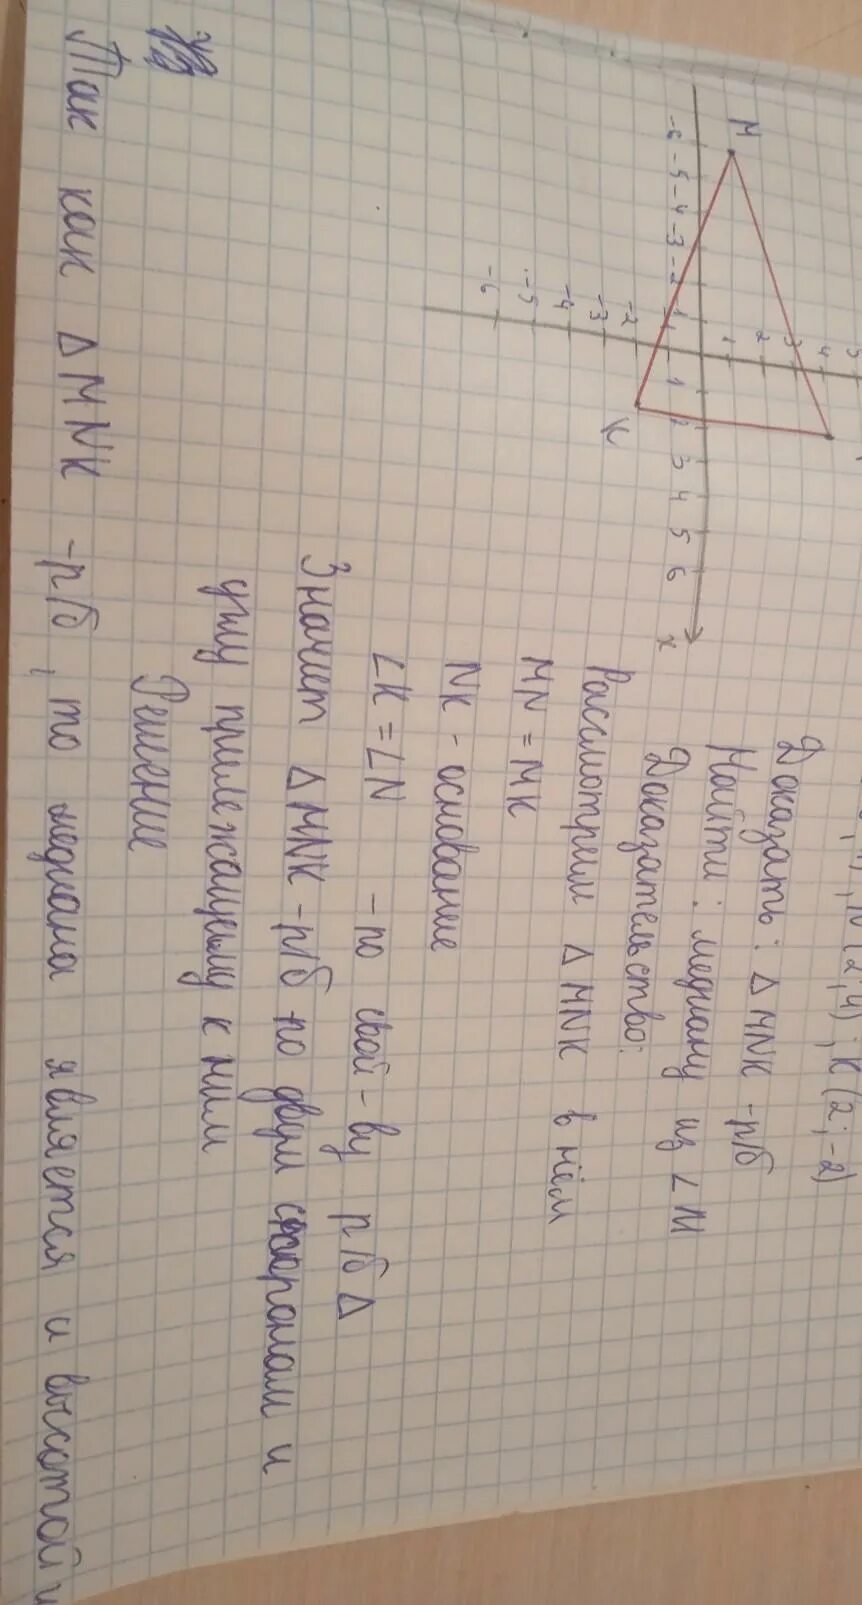 N (2; 4); K (2; -2)
Доказать: Δ MNK - р/б
Найти: медиану из ∠ M
Доказательство:
Рассмотрим Δ MNK в нём
MN = MK
NK - основание
∠K = ∠N - по свой-ву р/б Δ
Значит Δ MNK - р/б по двум сторонам и
углу прилежащему к ним
Решение
Так как Δ MNK - р/б, то медиана является и высотой и
M
K
x
-6 -5 -4 -3 -2 -1 1 2 3 4 5 6
5
4
3
2
1
-2
-3
-4
-5
-6